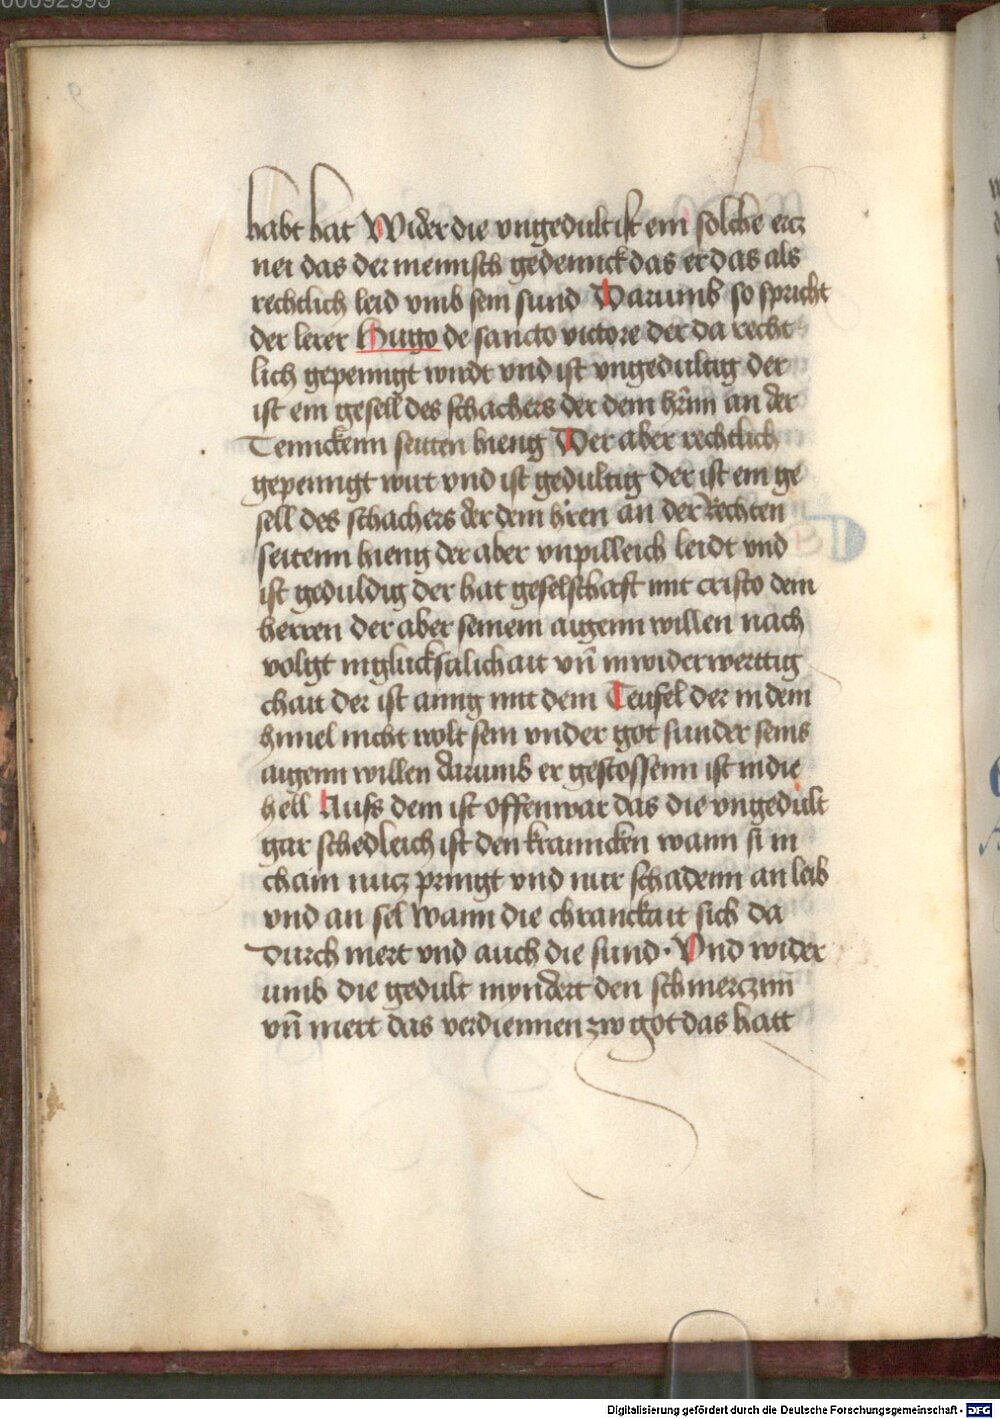 00092993
habt hat Wider die vngedult ist ein solche ercz
nei das der mennsch gedennck das er das als
rechtlich leid vmb sein sund Darumb so spricht
der lerer Hugo de sancto victore der da recht
lich gepeinigt wirdt vnd ist vngedultig der
ist ein gesell des schachers der dem hrnn an der
Tennckenn seitten hieng Wer aber rechtlich
gepeinigt wirt vnd ist gedultig der ist ein ge
sell des schachers der dem hren an der Rechten
seitenn hieng der aber vnpilleich leidt vnd
ist geduldig der hat geselschafft mit cristo dem
herren der aber seinem aigenn willen nach
volgt in glucksalichait vn̄ in widerwerttig
chait der ist ainig mit dem Teufel der in dem
himel nicht wolt sein vnder got sunder seins
aigenn willen darumb er gestossenn ist in die
hell Auss dem ist offenwar das die vngedult
gar schedleich ist den kranncken wann si in
chain nucz pringt vnd nur schadenn an leib
vnd an sel wann die chranckait sich da
durch mert vnd auch die sund · Vnd wider
umb die gedult myndert den schmerczenn
vn̄ mert das verdiennen zw got das hatt
Digitalisierung gefördert durch die Deutsche Forschungsgemeinschaft - DFG